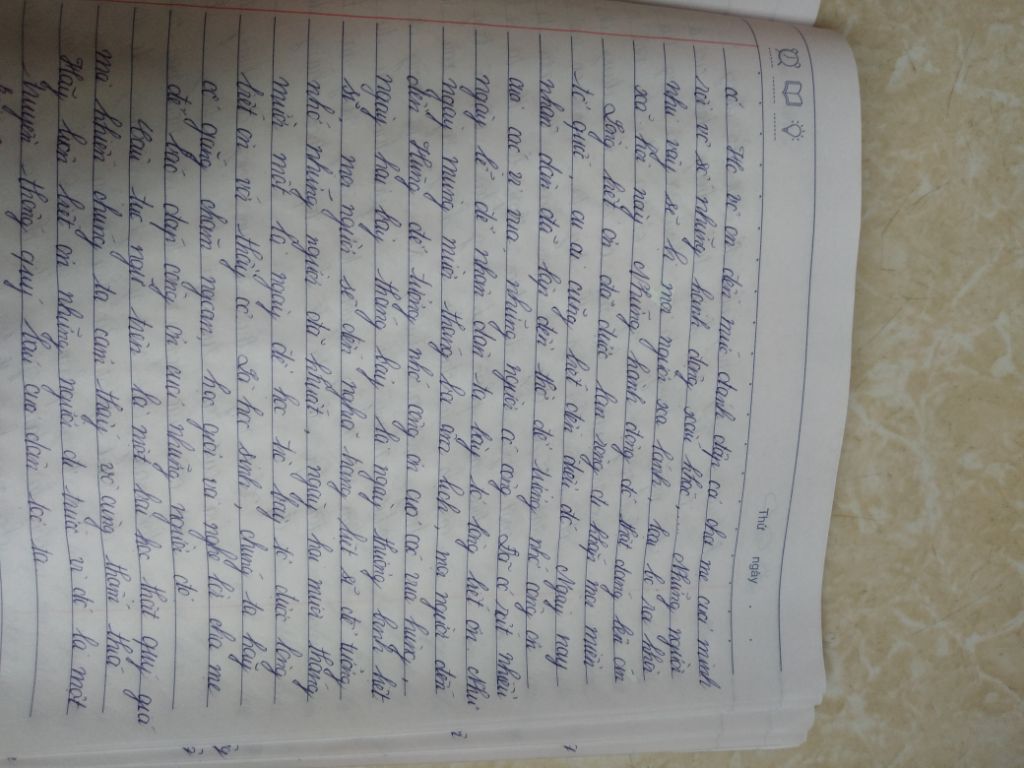 Thứ ngày
cả. Họ vô ơn đến mức đánh đập cả cha mẹ của mình
rồi vô số những hành động xấu khác,... Những người
như vậy sẽ bị mọi người xa lánh, loại bỏ ra khỏi
xã hội này. Những hành động đó thật đáng lên án
Lòng biết ơn đã được lan rộng đi khắp mọi miền
tổ quốc, ai ai cũng biết đến điều đó. Ngày nay
nhân dân đã lập đền thờ để tưởng nhớ công ơn
của các vị vua những người có công. Đã có rất nhiều
ngày lễ để nhân dân ta bày tỏ lòng biết ơn như
ngày mùng mười tháng ba âm lịch, mọi người đến
đền Hùng để tưởng nhớ công ơn của các vua hùng,
ngày hai bảy tháng bảy là ngày thương binh liệt
sĩ, mọi người sẽ đến nghĩa trang liệt sĩ để tưởng
nhớ những người đã khuất, ngày hai mươi tháng
mười một là ngày để học trò bày tỏ được lòng
biết ơn với thầy cô. Là học sinh, chúng ta hãy
cố gắng chăm ngoan, học giỏi và nghe lời cha mẹ
để báo đáp công ơn của những người đó
Câu tục ngữ trên là một bài học thật quý giá
mà khiến chúng ta cảm thấy vô cùng thấm thía
Hãy luôn biết ơn những người đi trước vì đó là một
truyền thống quý báu của dân tộc ta